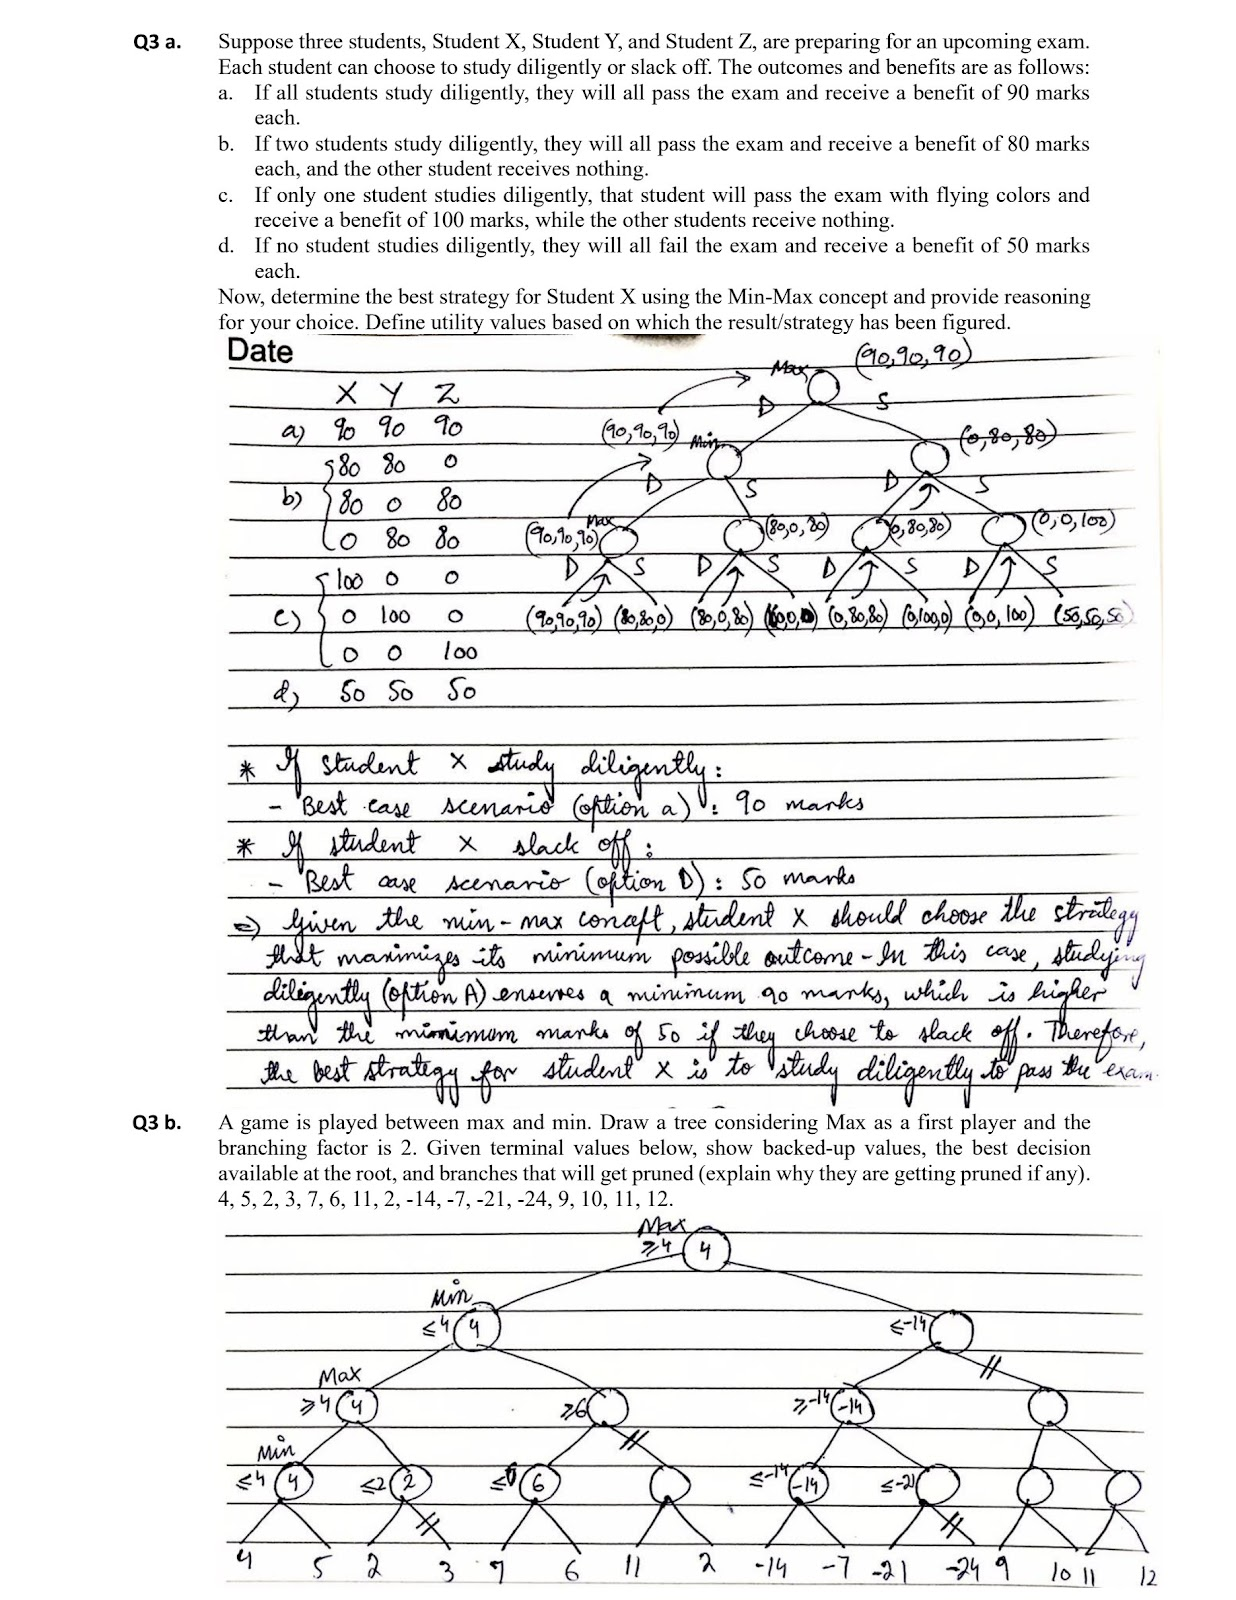 Q3 a. Suppose three students, Student X, Student Y, and Student Z, are preparing for an upcoming exam.
Each student can choose to study diligently or slack off. The outcomes and benefits are as follows:
a. If all students study diligently, they will all pass the exam and receive a benefit of 90 marks
each.
b. If two students study diligently, they will all pass the exam and receive a benefit of 80 marks
each, and the other student receives nothing.
c. If only one student studies diligently, that student will pass the exam with flying colors and
receive a benefit of 100 marks, while the other students receive nothing.
d. If no student studies diligently, they will all fail the exam and receive a benefit of 50 marks
each.
Now, determine the best strategy for Student X using the Min-Max concept and provide reasoning
for your choice. Define utility values based on which the result/strategy has been figured.
Date
X Y Z
a) 90 90 90
80 80 0
b) 80 0 80
0 80 80
100 0 0
c) 0 100 0
0 0 100
d) 50 50 50
Max (90,90,90)
D S
(90,90,90) Min (0,80,80)
D S D S
(90,90,90) Max (80,0,80) (0,80,80) (0,0,100)
D S D S D S D S
(90,90,90) (80,80,0) (80,0,80) (100,0,0) (0,80,80) (0,100,0) (0,0,100) (50,50,50)
* If student x study diligently:
- Best case scenario (option a) : 90 marks
* If student x slack off :
- Best case scenario (option D) : 50 marks
=> Given the min-max concept, student x should choose the strategy
that maximizes its minimum possible outcome - In this case, studying
diligently (option A) enserves a minimum 90 marks, which is higher
than the minimum marks of 50 if they choose to slack off. Therefore,
the best strategy for student x is to study diligently to pass the exam.
Q3 b. A game is played between max and min. Draw a tree considering Max as a first player and the
branching factor is 2. Given terminal values below, show backed-up values, the best decision
available at the root, and branches that will get pruned (explain why they are getting pruned if any).
4, 5, 2, 3, 7, 6, 11, 2, -14, -7, -21, -24, 9, 10, 11, 12.
Max
≥4 4
Min
≤4 4 ≤-14
Max
≥4 4 ≥6 ≥-14 -14
Min
≤4 4 ≤2 2 ≤6 6 ≤-14 -14 ≤-21
4 5 2 3 7 6 11 2 -14 -7 -21 -24 9 10 11 12